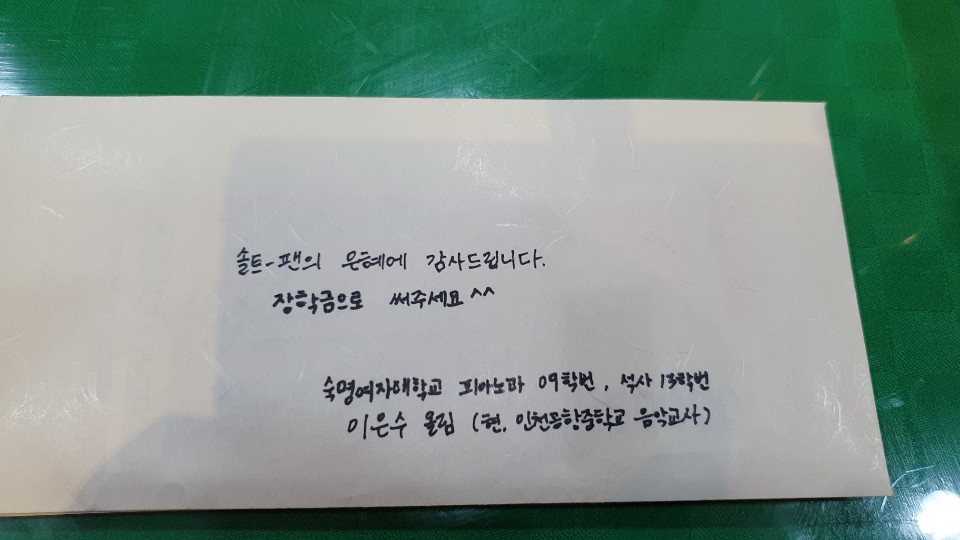 솔트-팬의 은혜에 감사드립니다.
장학금으로 써주세요^^
숙명여자대학교 피아노과 09학번, 석사 13학번
이은수 올림 (현, 인천동항중학교 음악교사)